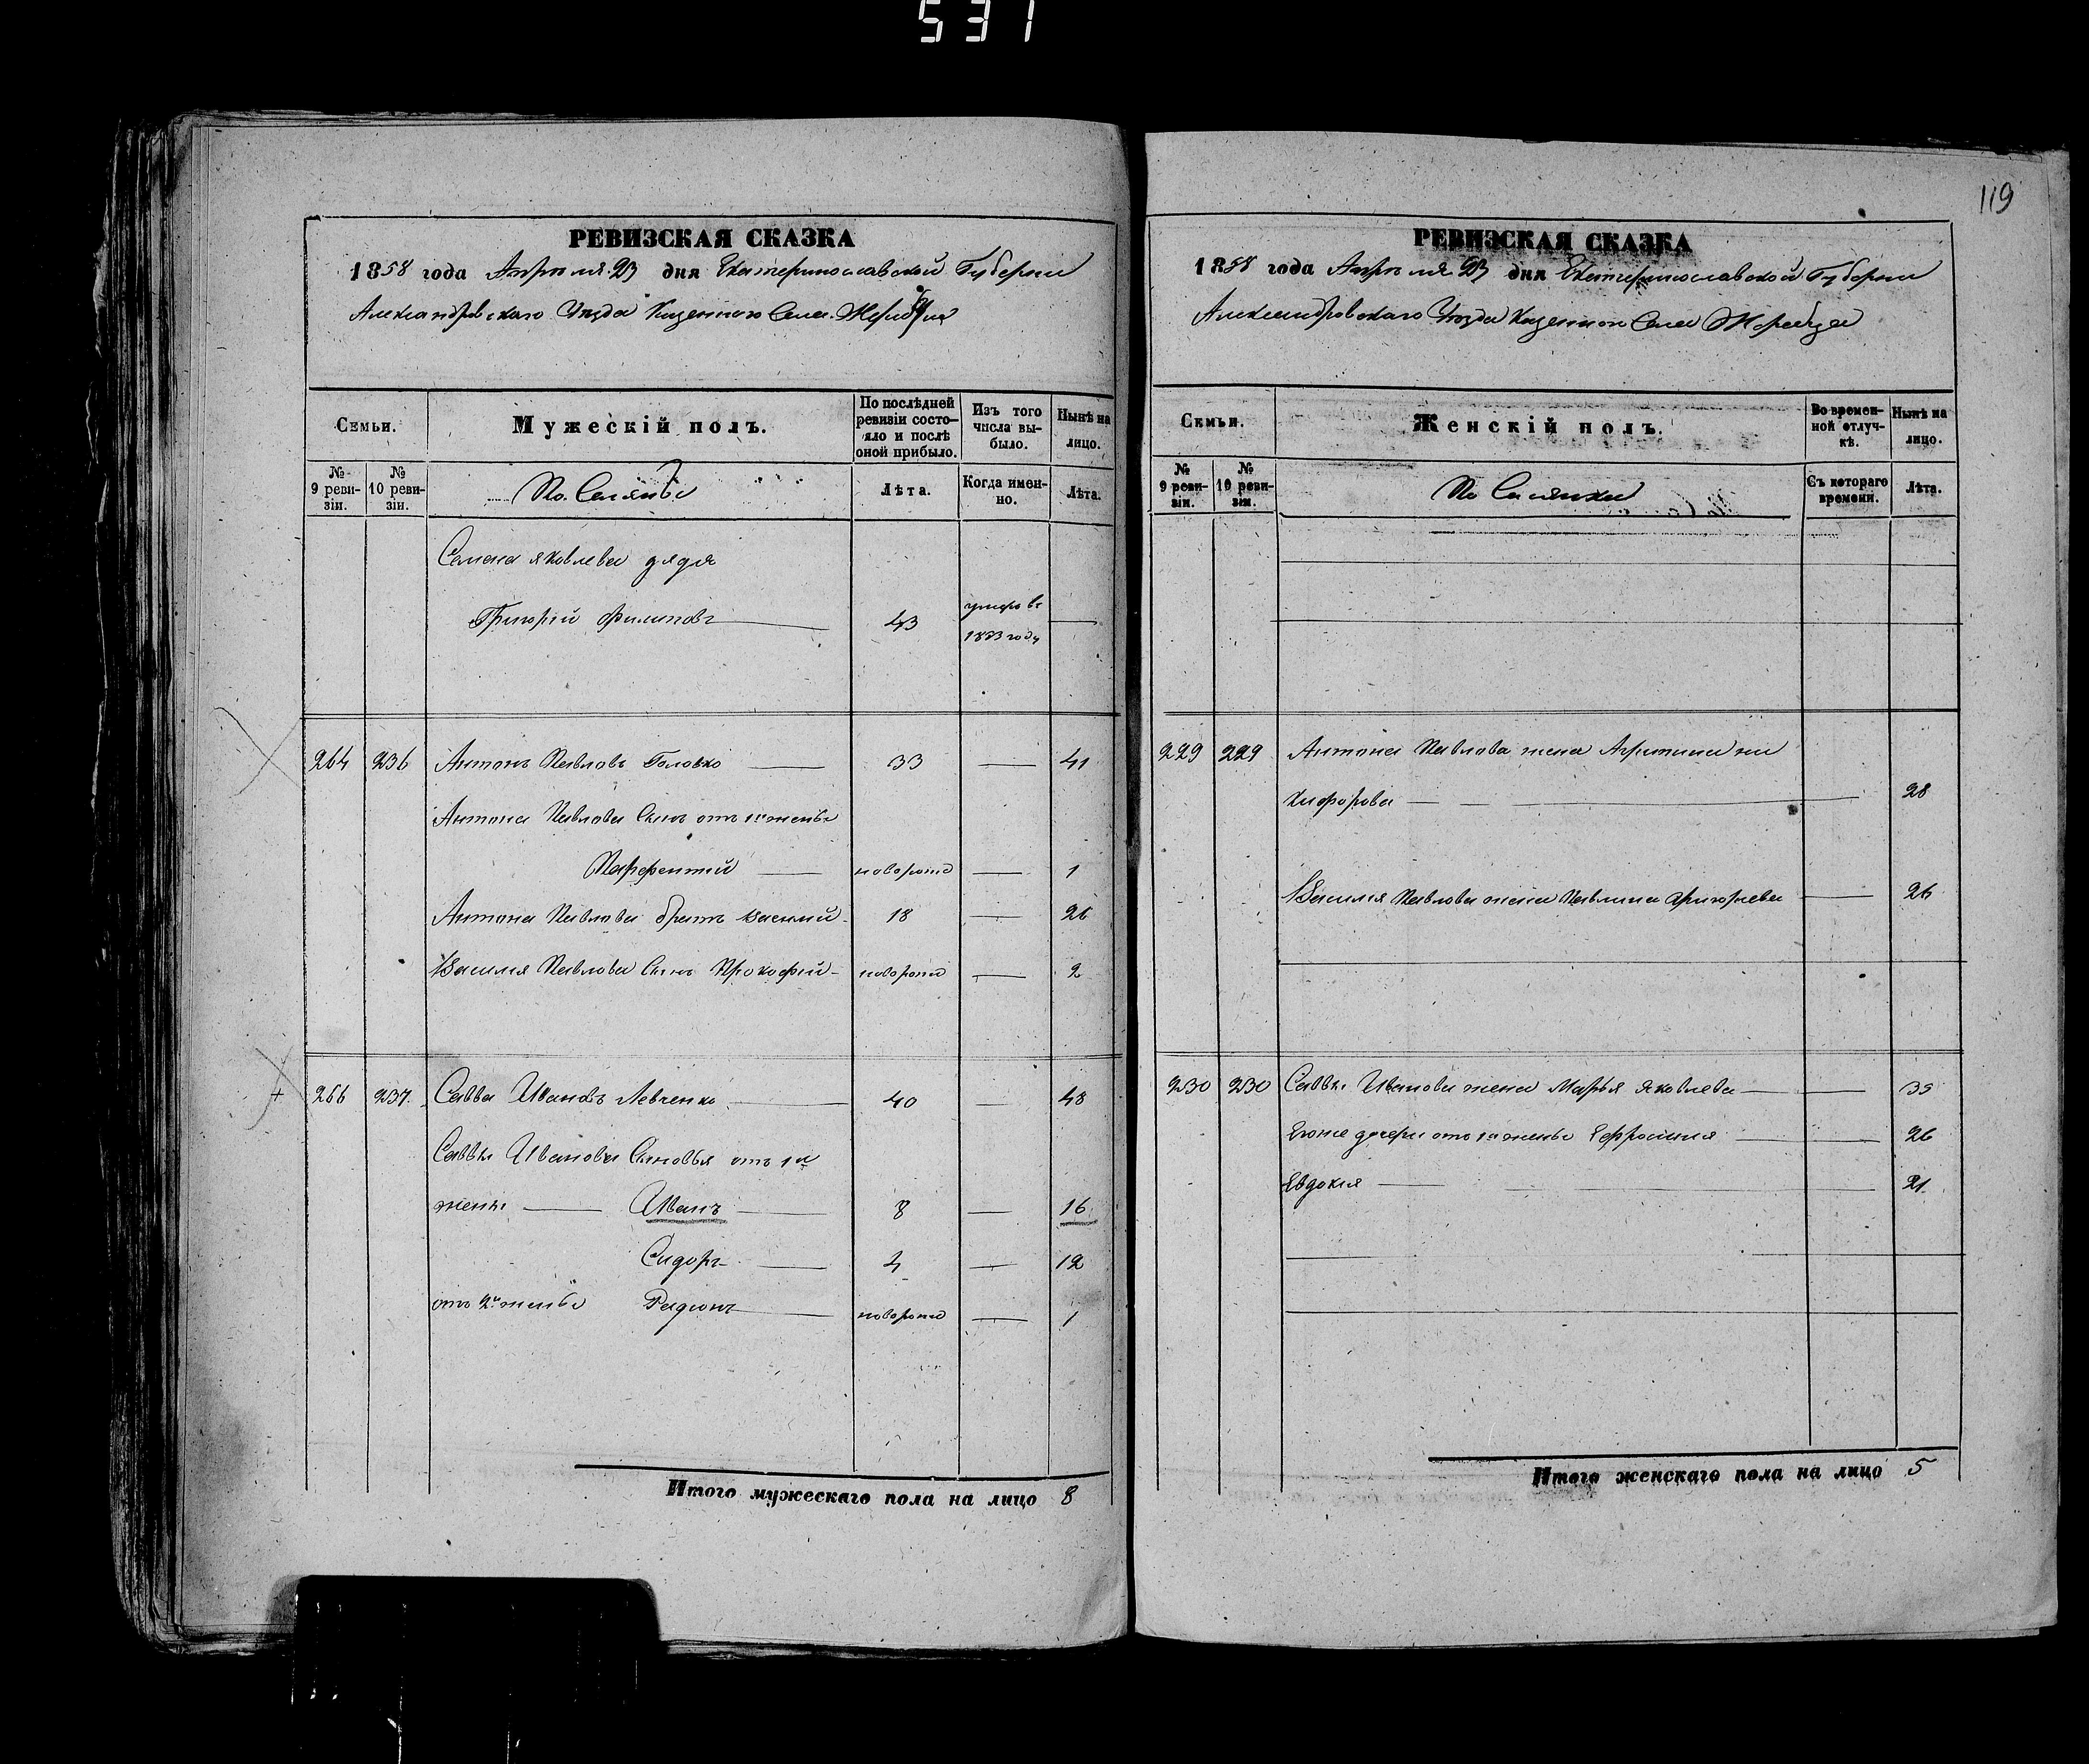 531
РЕВИЗСКАЯ СКАЗКА
1858 года Апреля 23 дня Екатеринославской Губернии
Александровскаго Уезда Казеннаго Села Жеребца
Семьи.
Мужескій полъ.
По послѣдней ревизіи состояло и послѣ оной прибыло.
Изъ того числа выбыло.
Нынѣ на лицо.
№ 9 ревизіи.
№ 10 ревизіи.
Поселяне
Лѣта.
Когда именно.
Лѣта.
Семена Яковлева дядя
Григорій Филиповъ 43 умеръ въ
1853 году
264 236 Антонъ Павловъ Головко 33 41
Антона Павлова Сынъ отъ 1й жены
Парфентій новорожд 1
Антона Павлова братъ Василий 18 26
Василия Павлова Сынъ Прокофій новорожд 2
266 237 Савва Ивановъ Левченко 40 48
Саввы Иванова Сыновья отъ 1й
жены Иванъ 8 16
Сидоръ 4 12
отъ 2й жены Радионъ новорожд 1
Итого мужескаго пола на лицо 8
119
РЕВИЗСКАЯ СКАЗКА
1858 года Апреля 23 дня Екатеринославской Губернии
Александровскаго Уезда Казеннаго Села Жеребца
Семьи.
Женскій полъ.
Во временной отлучкѣ.
Нынѣ на лицо.
№ 9 ревизіи.
№ 10 ревизіи.
Поселянки
Съ котораго времени.
Лѣта.
229 229 Антона Павлова жена Агрипина Ни
кифорова 28
Василия Павлова жена Павлина Григорьева 26
230 230 Саввы Иванова жена Марья Яковлева 35
Егоже дочери отъ 1й жены Ефросиния 26
Евдокия 21
Итого женскаго пола на лицо 5